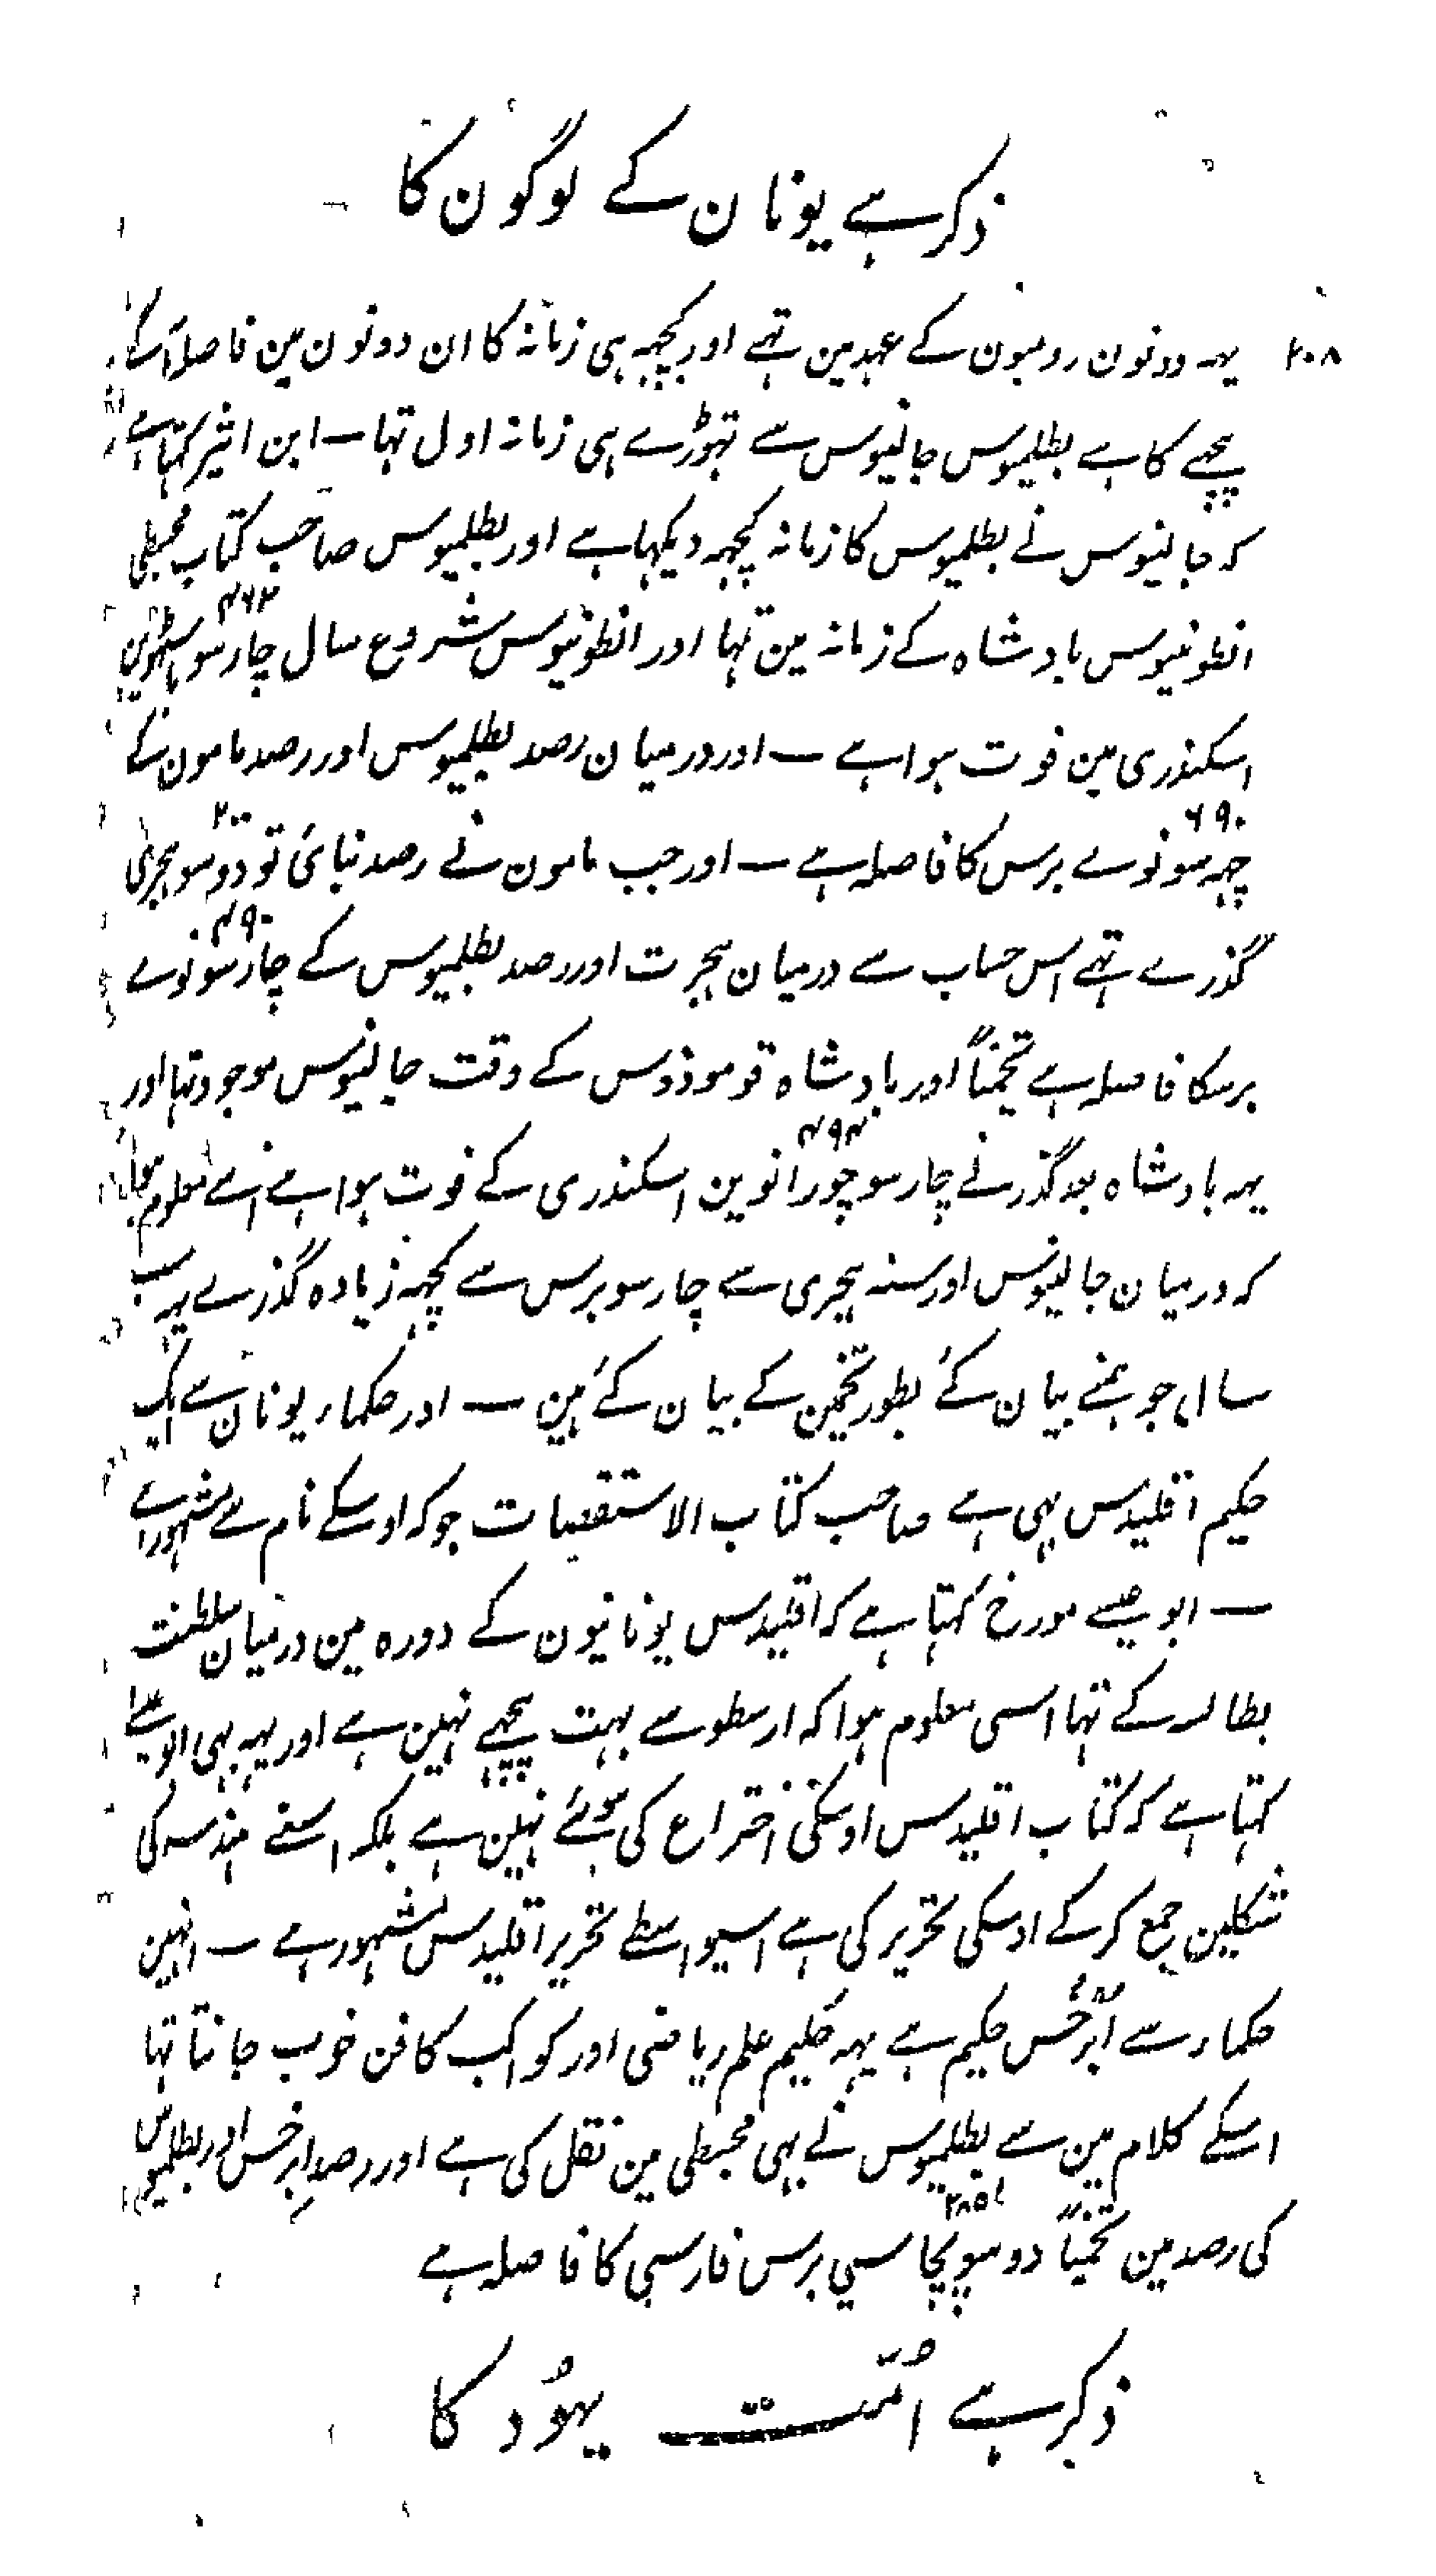 ذکر ہے یونان کے لوگون کا
۲۰۸
یہہ دونون رومیون کے عہد مین تہے اور کچہہ ہی زمانہ کا ان دونون مین فاصلہ آگے
پیچھے کا ہے بطلمیوس جالنیوس سے تہوڑے ہی زمانہ اول تہا ـ ابن اثیر کہتا ہے
کہ جالنیوس نے بطلمیوس کا زمانہ کچہہ دیکہا ہے اور بطلمیوس صاحب کتاب مجسطی
۴۶۲
انطونیوس بادشاہ کے زمانہ مین تہا اور انطونیوس شروع سال چار سو باسٹہوین
اسکندری مین فوت ہوا ہے ـ اور درمیان رصد بطلمیوس اور رصد مامون کے
۶۹۰ ۲۰۰
چہہ سو نوے برس کا فاصلہ ہے ـ اور جب مامون نے رصد بنائی تو دو سو ہجری
۴۹۰
گذرے تہے اس حساب سے درمیان ہجرت اور رصد بطلمیوس کے چار سو نوے
برسکا فاصلہ ہے تخمیناً اور بادشاہ قوموذوس کے وقت جالنیوس موجود تہا اور
۴۹۴
یہہ بادشاہ بعد گذرنے چار سو چورانوین اسکندری کے فوت ہوا ہے معلوم ہوا
کہ درمیان جالنیوس اور سنہ ہجری سے چار سو برس سے کچہہ زیادہ گذرے یہہ سب
سال جو ہمنے بیان کئے بطور تخمین کے بیان کئے ہین ـ اور حکماء یونان سے ایک
حکیم اقلیدس بہی ہے صاحب کتاب الاستقصات جو کہ اوسکے نام سے مشہور ہے
ـ ابو عیسے مورخ کہتا ہے کہ اقلیدس یونانیون کے دورہ مین درمیان سلطنت
بطالسہ کے تہا اسسی معلوم ہوا کہ ارسطو سے بہت پیچھے نہین ہے اور یہہ بہی ابو عیسے
کہتا ہے کہ کتاب اقلیدس اوسکی اختراع کی ہوئے نہین ہے بلکہ اسنے ہندسہ کی
شکلین جمع کر کے اوسکی تحریر کی ہے اسیواسطے تحریر اقلیدس مشہور ہے ـ انہین
حکماء سے اَبّرخُس حکیم ہے یہہ حکیم علم ریاضی اور کواکب کا فن خوب جانتا تہا
اسکے کلام مین سے بطلمیوس نے بہی مجسطی مین نقل کی ہے اور رصدِ ابرخس اور بطلمیوس
۲۸۵
کی رصد مین تخمیناً دو سو پچاسی برس فارسی کا فاصلہ ہے
ذکر ہے اُمّت یہوُد کا